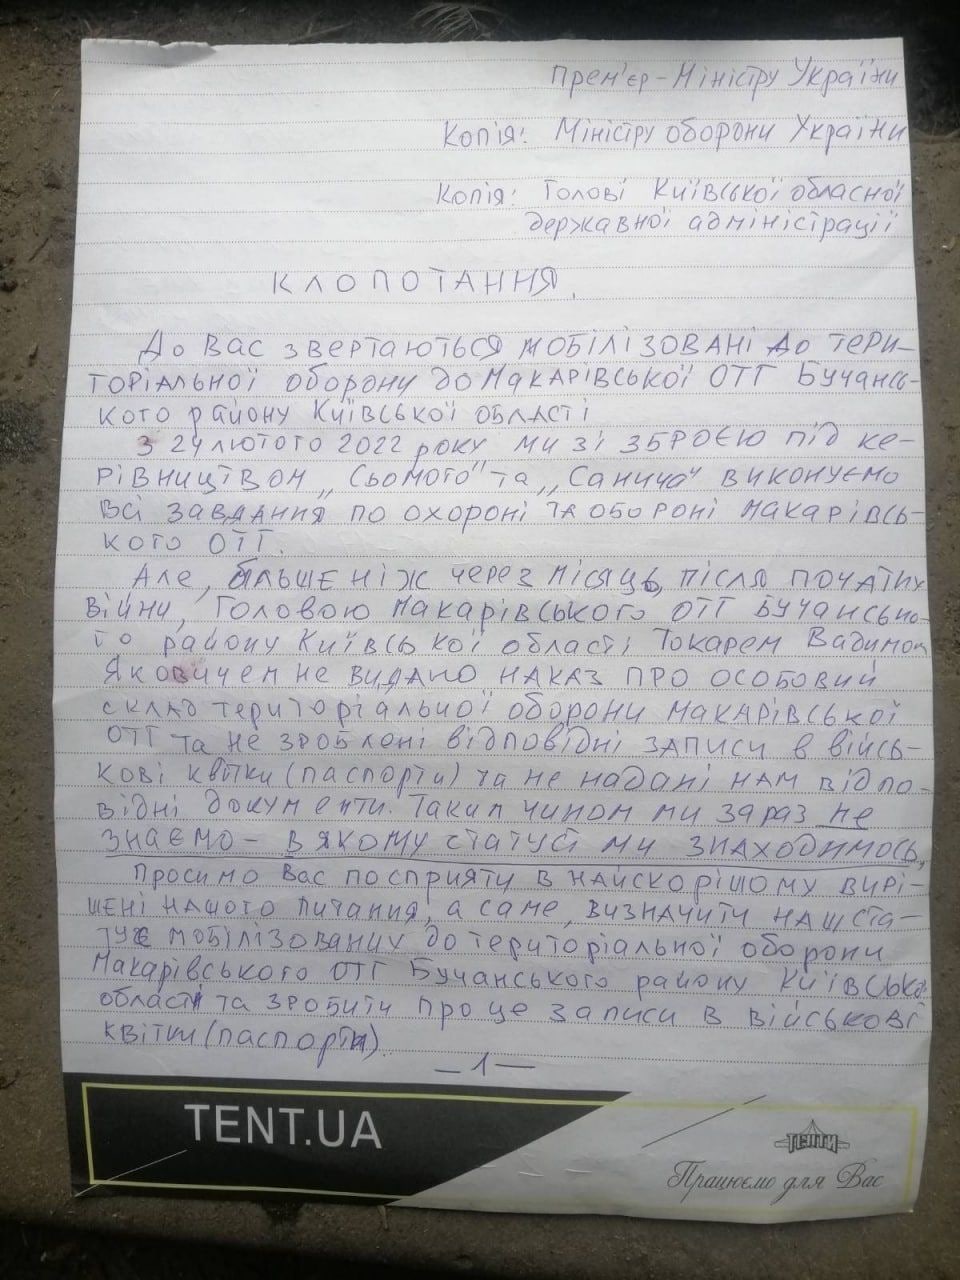 Прем'єр-Міністру України
Копія: Міністру оборони України
Копія: Голові Київської обласної
державної адміністрації
КЛОПОТАННЯ.
До Вас звертаються мобілізовані до тери-
торіальної оборони до Макарівської ОТГ Бучансь-
кого району Київської області
З 24 лютого 2022 року ми зі зброєю під ке-
рівництвом „Сьомого" та „Санича" виконуємо
всі завдання по охороні та обороні Макарівсь-
кого ОТГ.
Але, більше ніж через місяць, після початку
війни, Головою Макарівського ОТГ Бучансько-
го району Київської області Токарем Вадимом
Яковичем не видано наказ про особовий
склад територіальної оборони Макарівської
ОТГ та не зроблені відповідні записи в війсь-
кові квитки (паспорти) та не надані нам відпо-
відні документи. Таким чином ми зараз не
знаємо – в якому статусі ми знаходимось.
Просимо Вас посприяти в найскорішому вирі-
шені нашого питання, а саме, визначити наш ста-
тус мобілізованих до територіальної оборони
Макарівського ОТГ Бучанського району Київської
області та зробити про це записи в військові
квітки (паспорти).
– 1 –
TENT.UA
ТЕНТИ
Працюємо для Вас